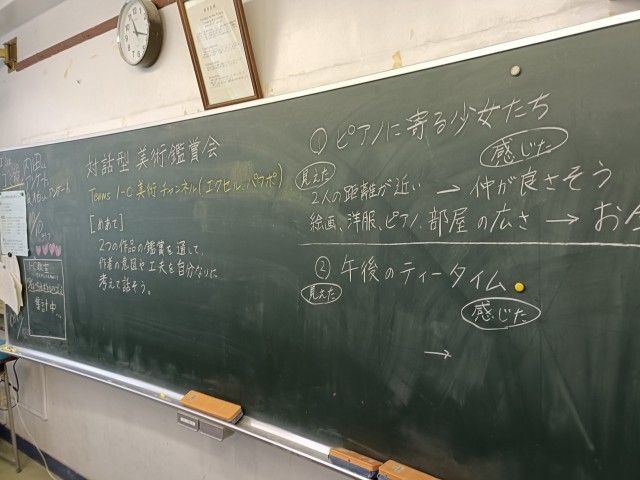 対話型 美術鑑賞会
Teams 1-C 美術チャンネル(エクセル、パワポ)
[めあて]
2つの作品の鑑賞を通して、
作者の意図や工夫を自分なりに
考えて話そう。
① ピアノに寄る少女たち
見えた 感じた
2人の距離が近い → 仲が良さそう
絵画、洋服、ピアノ、部屋の広さ → お金
② 午後のティータイム
見えた 感じた
→
集計中…